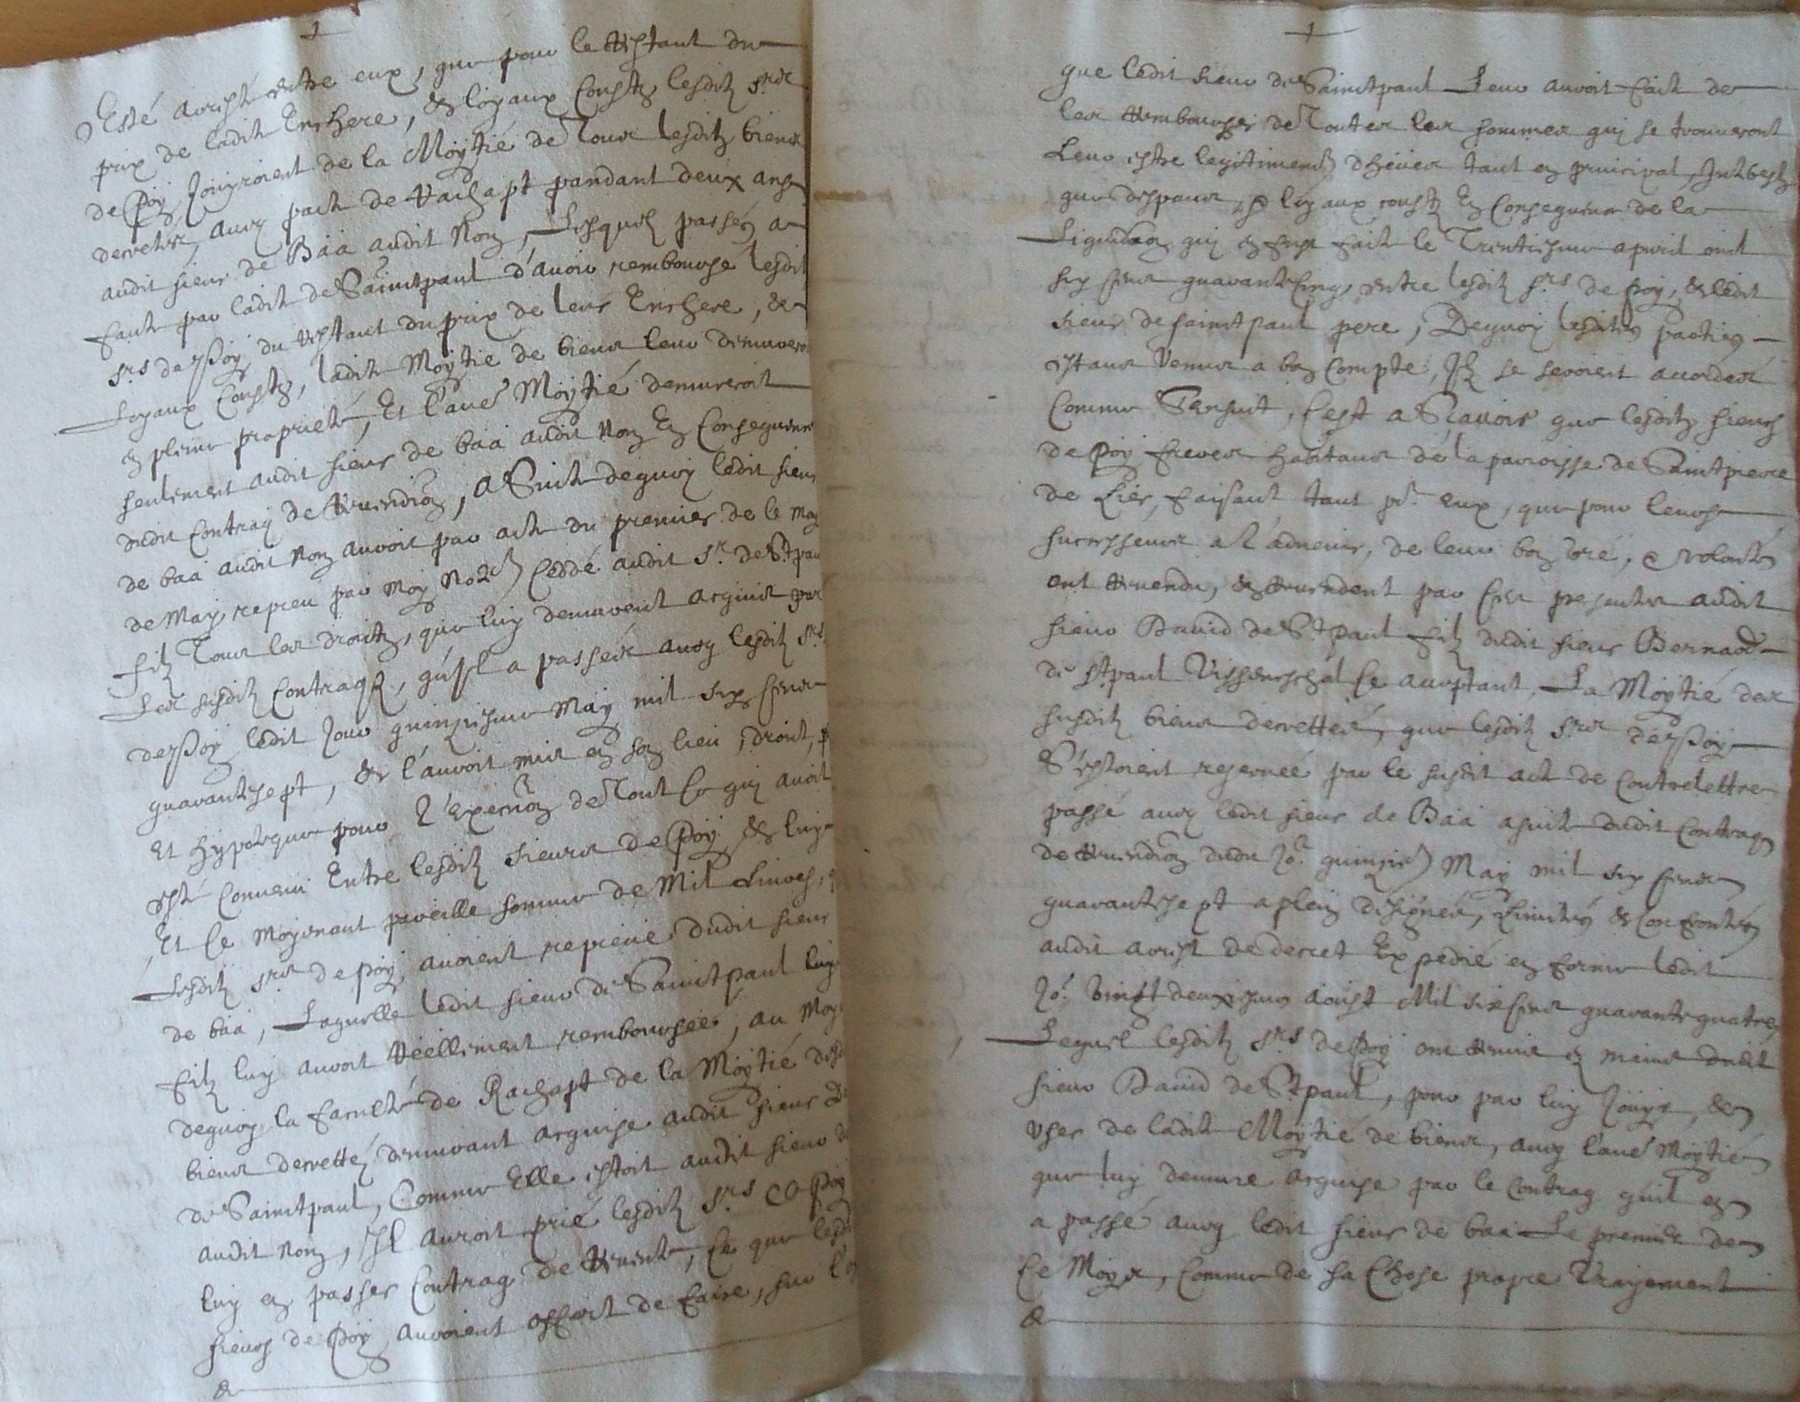 Esté arresté entre eux, que pour le restant du
prix de ladite Enchere, & loyaux Coustz lesditz srs
de Poÿ Jouyroient de la Moÿtié de Tous lesditz biens
decretés, aveq pacte de Rachapt pandant deux ans
audit sieur de Baà audit Nom, Lesquelz passés a
faute par ledit de Sainctpaul d'avoir rembourssé lesdit
srs de Poÿ du restant du prix de leur Enchere, &
Loyaux Coustz, ladite Moÿtié de biens leur demureroi
en pleine proprieté, Et l'autre Moÿtié demureroit
seulement audit sieur de baà audit Nom En Consequence
dudit Contraq de Revendion, A Suite dequoy ledit sieur
de baà audit Nom auroit par acte du premier de ce moy
de May, repceu par moy Not.re Ceddé audit sr. de St paul
filz Tous les droitz, que luy demuroient acquis par
Les susditz Contraqz, qu'jl a passés aveq lesditz srs
de Poÿ ledit Jour quinziesme May mil six Cens
quarante sept, & l'auroit mis en son lieu, droit, &
Et hypoteque pour l'Execution de Tout Ce quj avoit
esté Convenu Entre lesditz sieurs de Poÿ & luy
Et Ce moyenant pareille somme de Mil Livres,
Lesditz srs de Poÿ avoient repceue dudit sieur
de baà, Laquelle ledit sieur de Sainctpaul luy
filz luy auroit Réellement rembourssée, au Moy
dequoy la faculté de Rachapt de la Moÿtié desd
biens decrettés demurant acquise audit sieur D
de Sainctpaul, Comme Elle estoit audit sieur de
audit Nom, jl auroit prié lesditz srs de Poÿ
luy en passer Contraq de Revente, Ce que lesd
sieurs de Poÿ auroient offert de faire, sur l'o
&
que ledit sieur de Sainctpaul Leur auroit fait de
les rembourser de Toutes les sommes quj se trouveront
Leur estre legitimemt dheues tant en principal, Jnterestz
que despans, & loyaux coustz En Consequence de la
Liquidaon quj en fust fait le Trentiesme apvril mil
six Cens quarante Cinq, entre lesditz srs de Poÿ, & ledit
sieur de sainctpaul pere, Dequoÿ lesdites parties
estans Venues a bon Compte, Jlz se seroient accordés
Comme S'ensuit, C'est a Scavoir que lesditz sieurs
de Poÿ freres habitans de la parroisse de Sainctpierre
de Lier, faisant tant pr. eux, que pour leurs
successeurs a l'advenir, de leur bon gré, & volontés
ont revendu, & revendent par Ces presentes audit
sieur David de St paul filz dudit sieur Bernard
de St paul Vissenseshal Ce acceptant, La Moÿtié des
susditz biens decrettés, que lesditz srs de Poÿ
S'estoient reservée par le susdit acte de Contrelettre
passé aveq ledit sieur de Baà asuite dudit Contraq
de Revendion dudit Jor quinzies May mil six Cens
quarante sept a plein dizignés, Limités & Confrontés
audit arrest de decret Expedié en forme ledit
Jor. vingt deuxiesme Aoust Mil six Cens quarante quatre,
Lequel lesditz srs de Poÿ ont remis en mains dudit
sieur David de St paul, pour par luy Jouyr, &
user de ladite Moÿtié de biens, aveq l'autre Moÿtié
que luy demure acquise par le Contraq qu'il en
a passé aveq ledit sieur de baà Le premier de
Ce Moys, Comme de sa Chose propre Vrayement
&